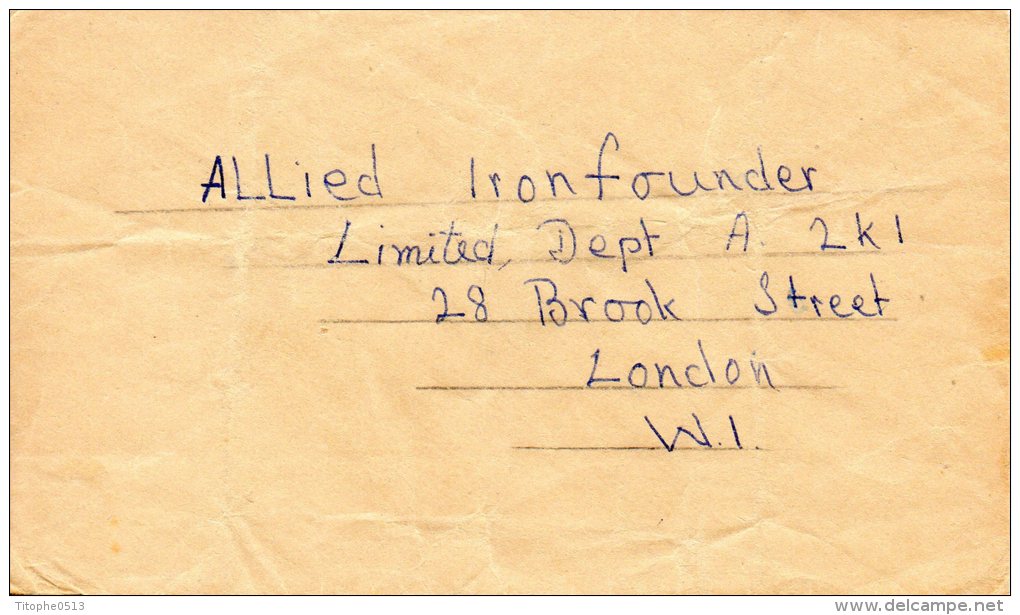 ALLied Ironfounder
Limited, Dept A. 2k1
28 Brook Street
London
W.1.
Titophe0513
www.delcampe.net